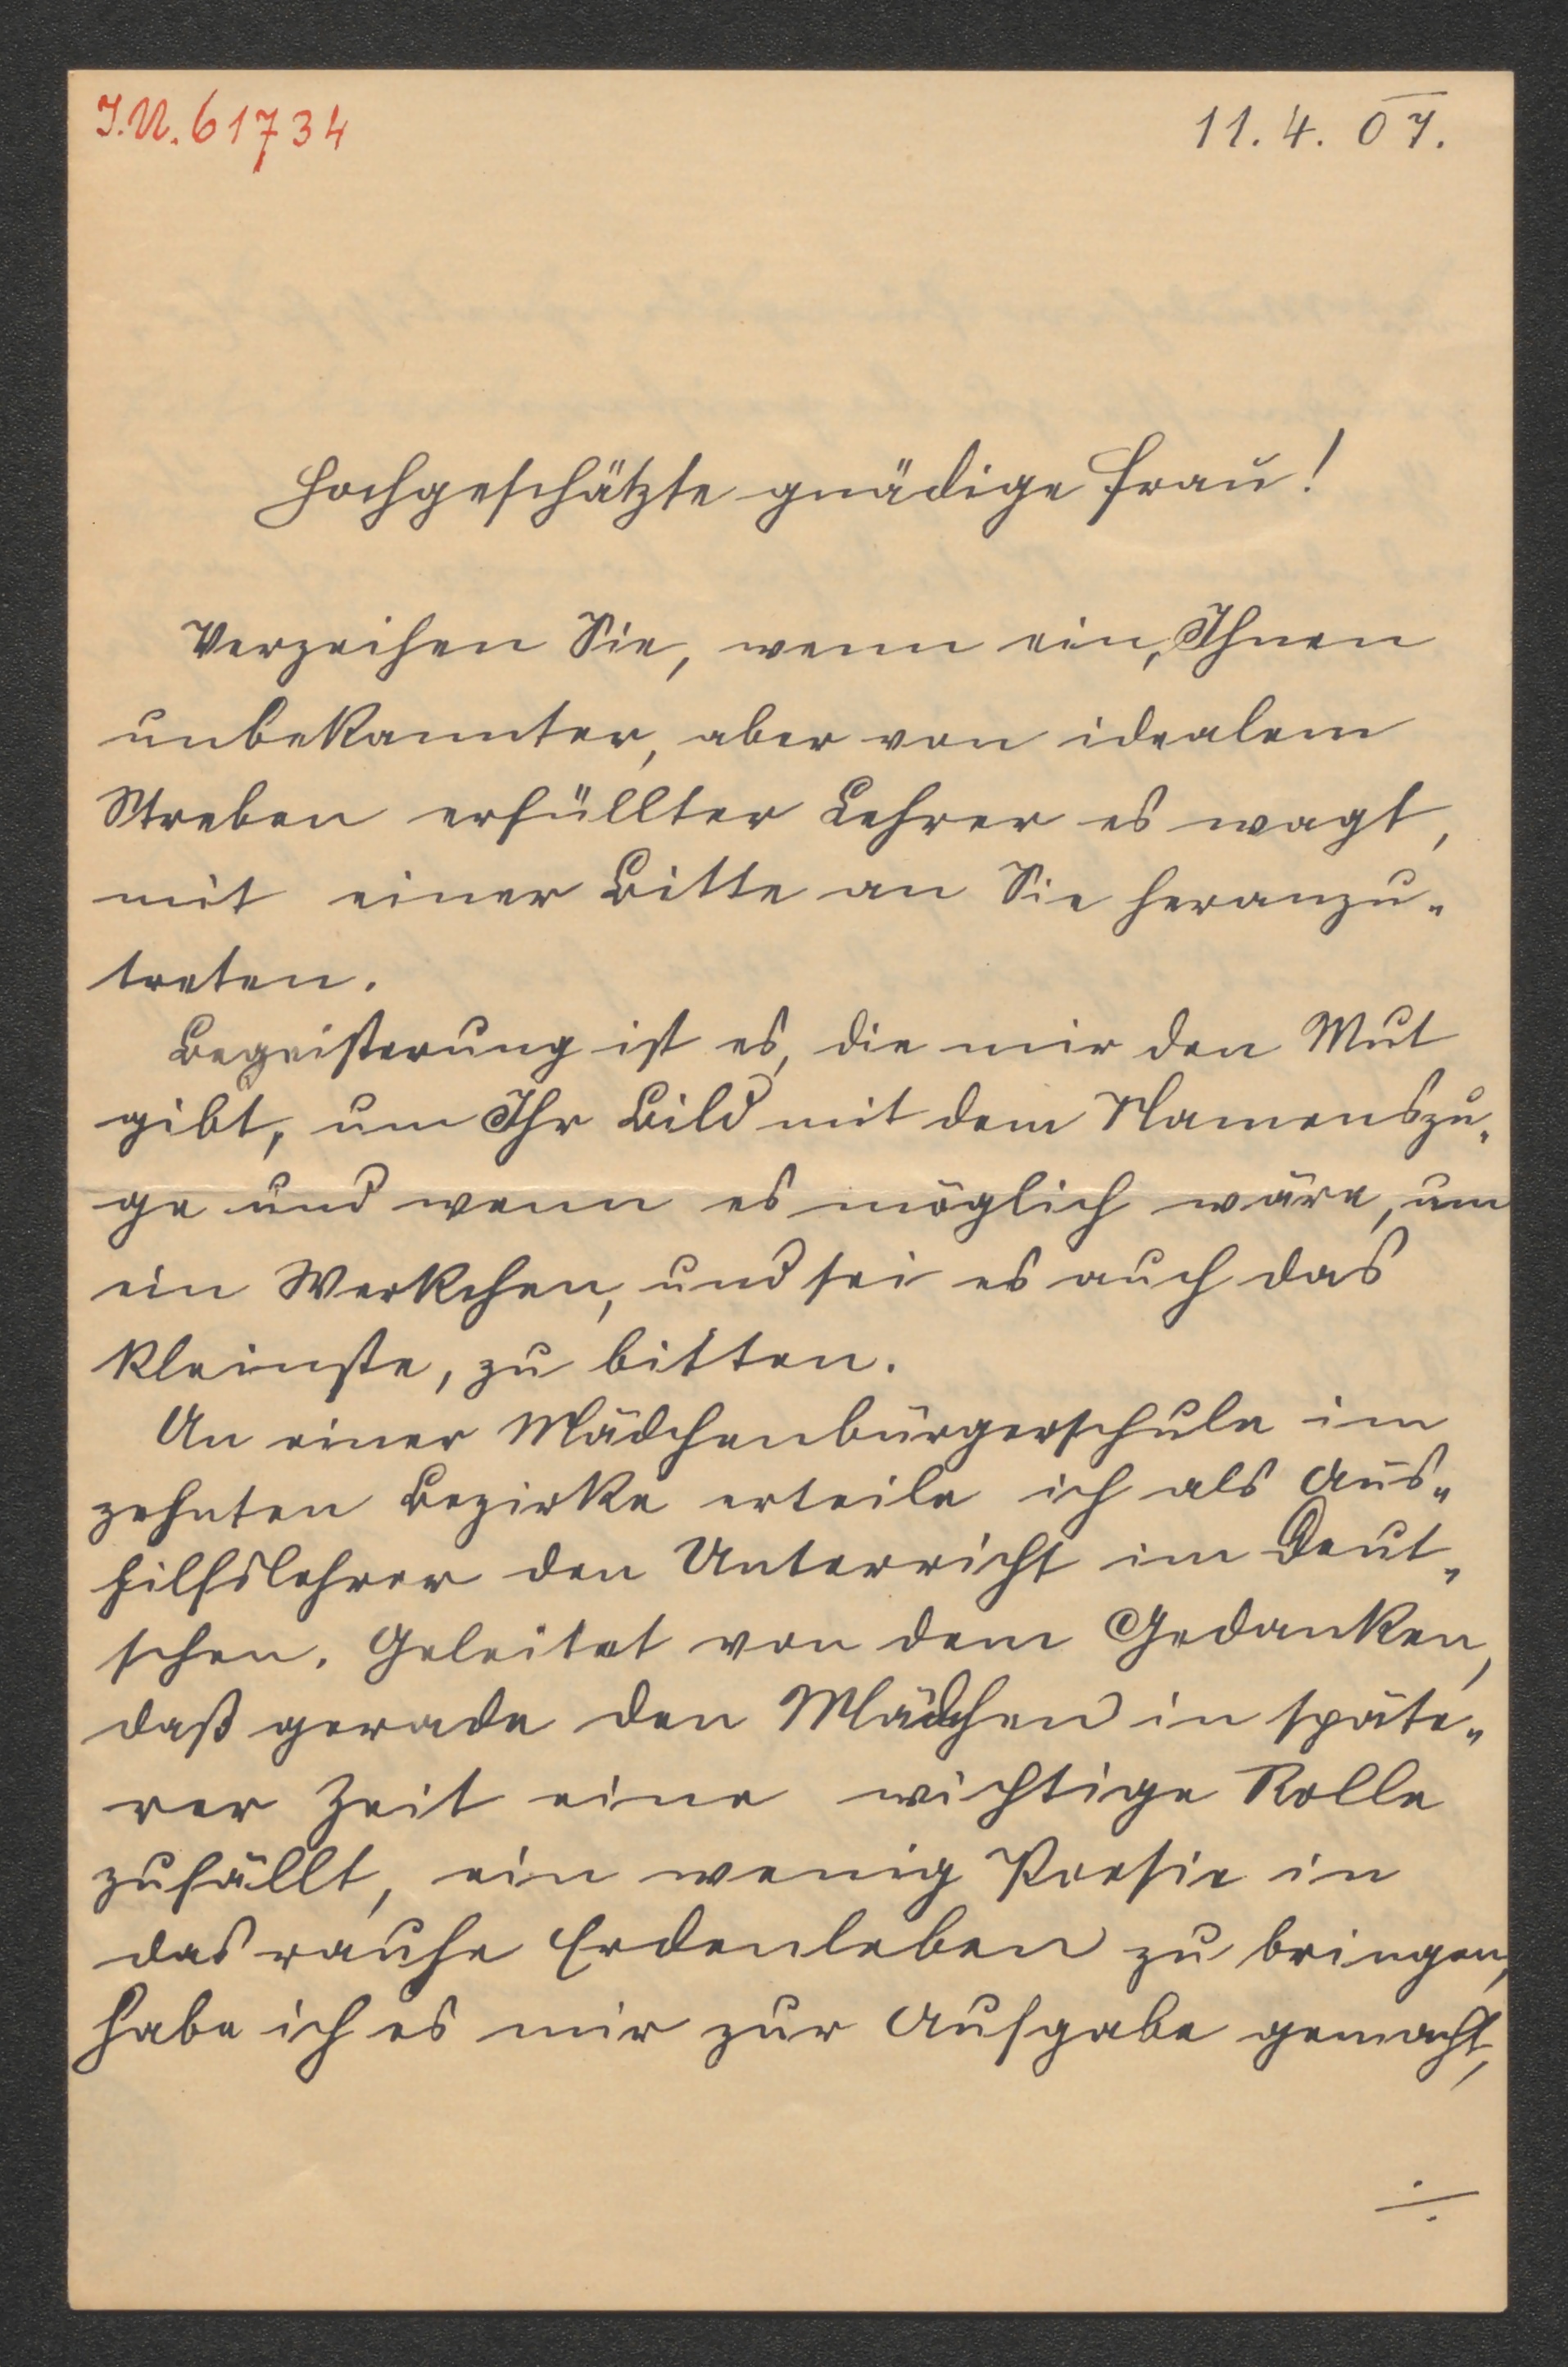 I.N. 61734
11. 4. 07.
Hochgeschätzte gnädige Frau!
Verzeihen Sie, wenn ein, Ihnen
unbekannter, aber von idealem
Streben erfüllter Lehrer es wagt,
mit einer Bitte an Sie heranzu-
treten.
Begeisterung ist es, die mir den Mut
gibt, um Ihr Bild mit dem Namenszu-
ge und wenn es möglich wäre, um
ein Werkchen, und sei es auch das
kleinste, zu bitten.
An einer Mädchenbürgerschule im
zehnten Bezirke erteile ich als Aus-
hilfslehrer den Unterricht im Deut-
schen. Geleitet von dem Gedanken,
daß gerade den Mädchen in späte-
rer Zeit eine wichtige Rolle
zufällt, ein wenig Poesie in
das rauhe Erdenleben zu bringen,
habe ich es mir zur Aufgabe gemacht,
./.